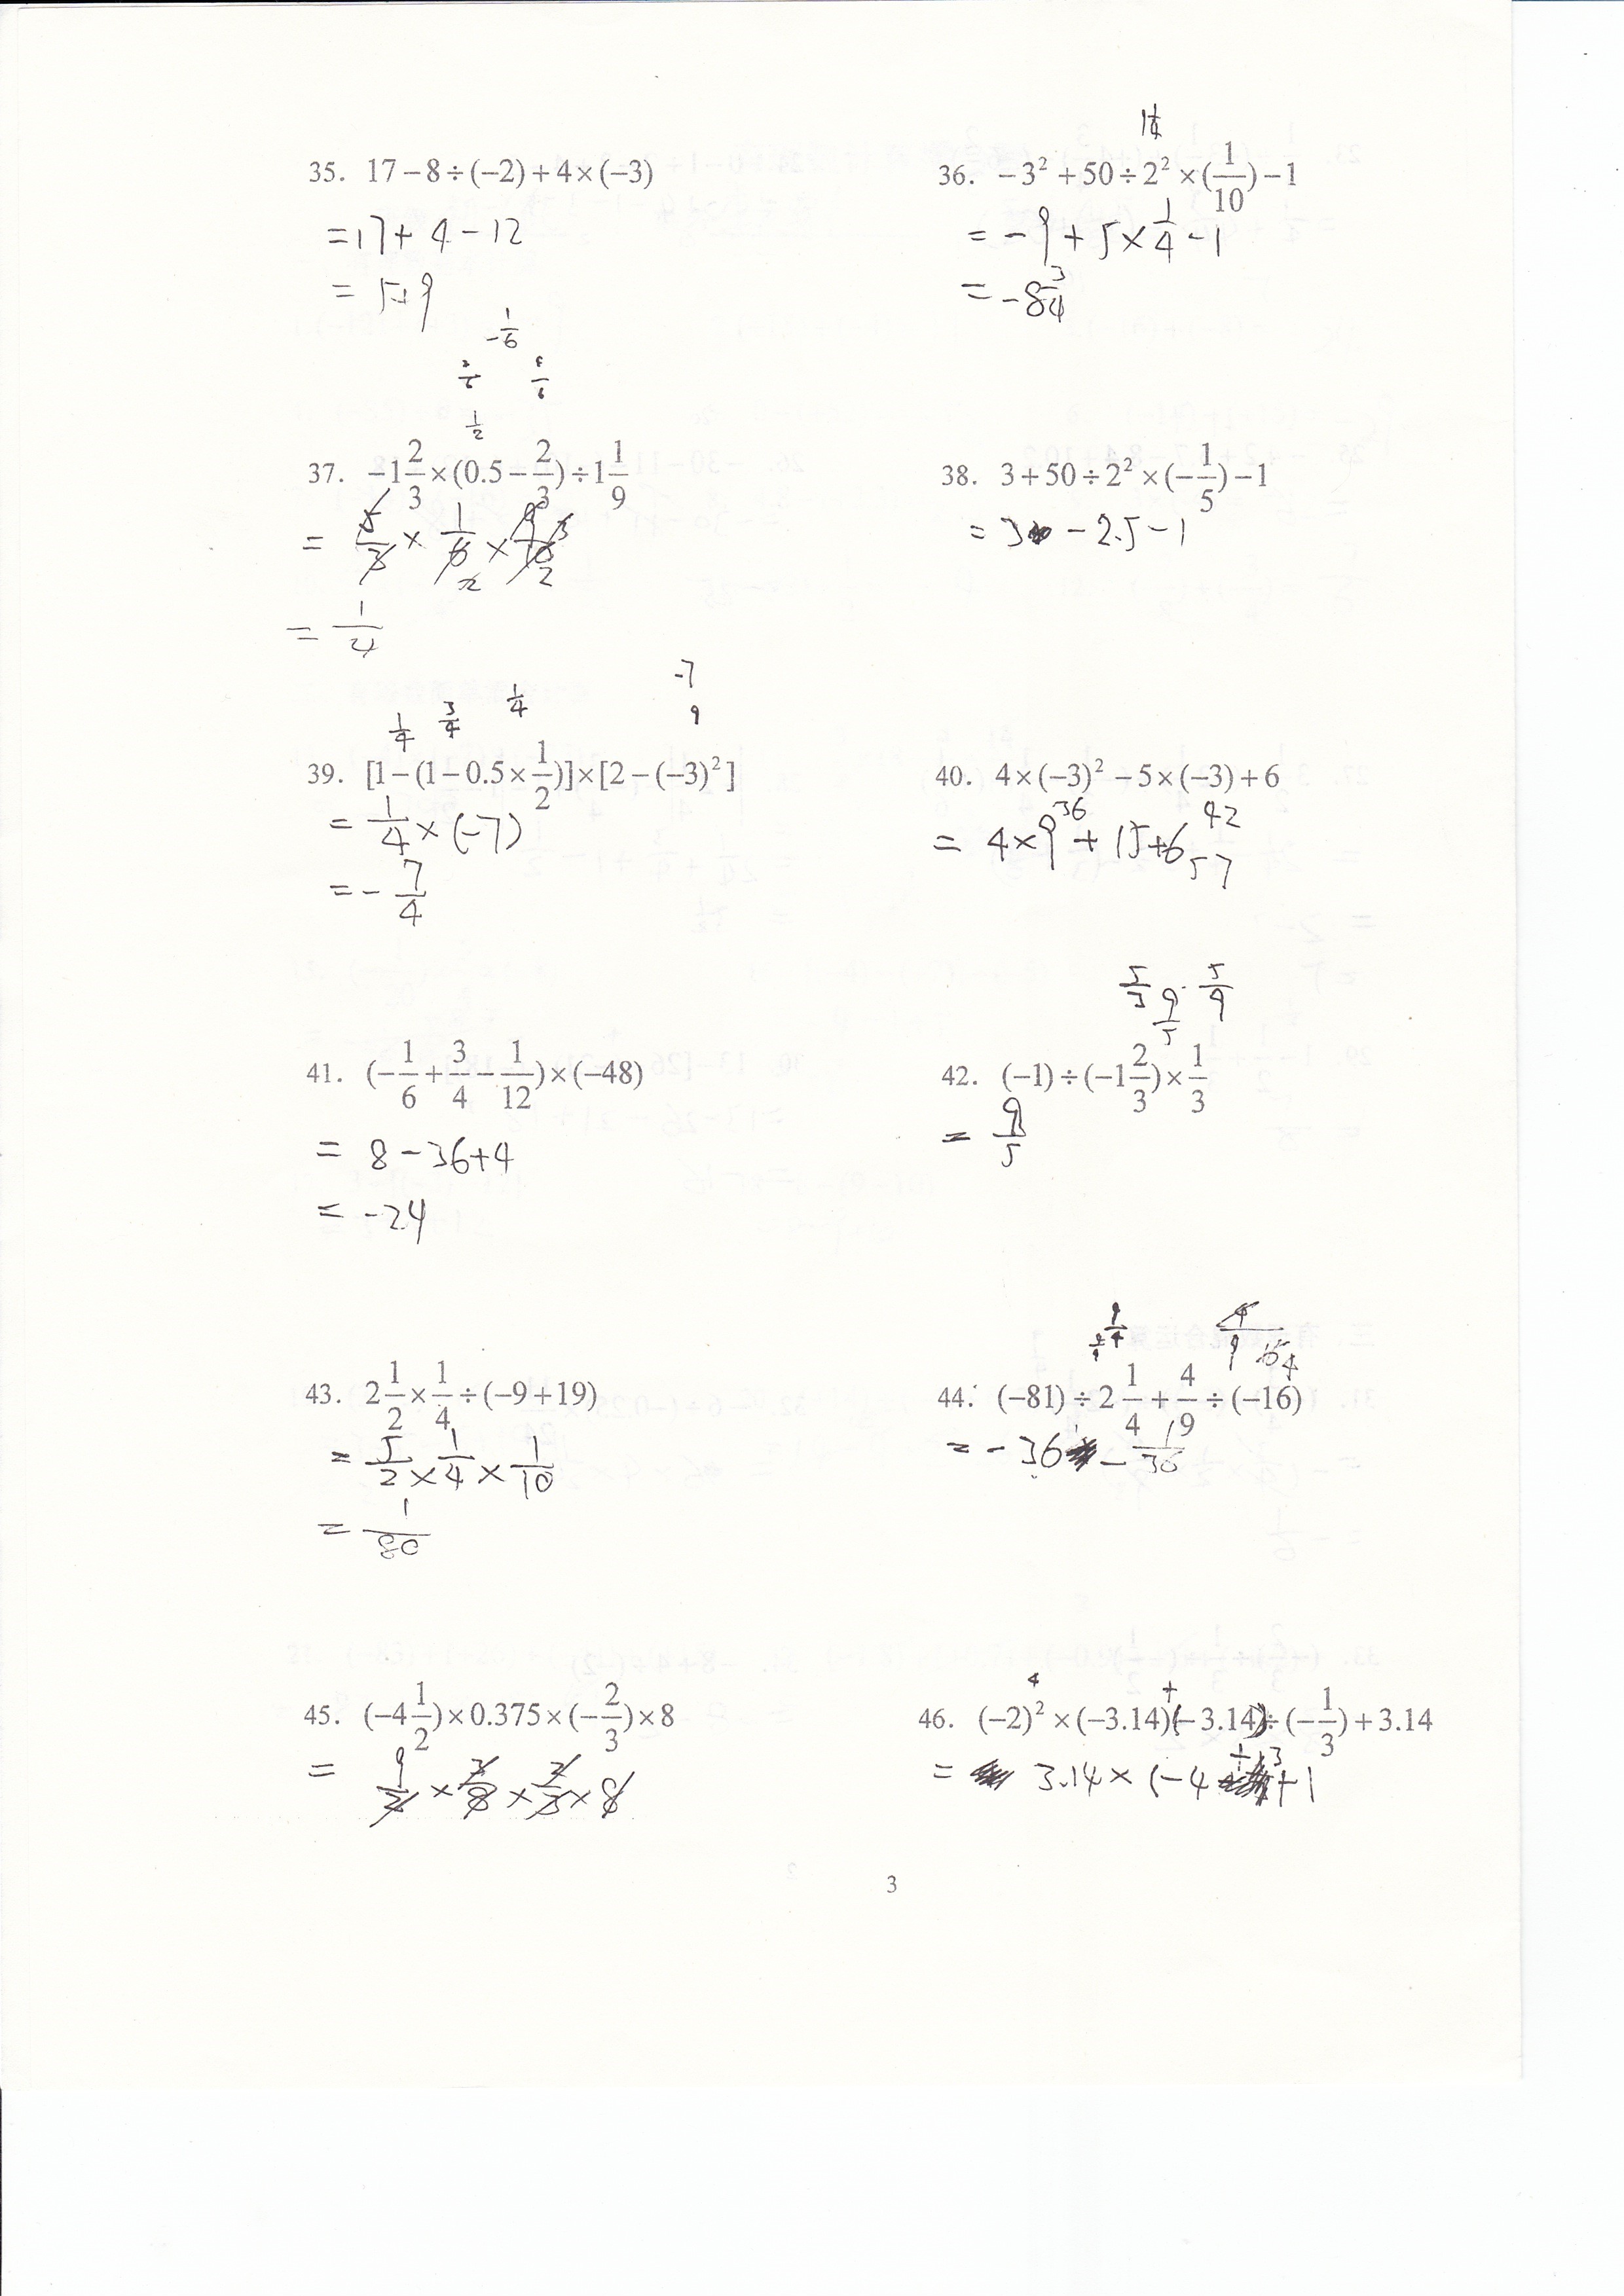 35. 17−8÷(−2)+4×(−3)
=17+4−12
=9
1 1/4
36. −3²+50÷2²×(1/10)−1
=−9+5×1/4−1
=−8 3/4
−1/6
1/2
37. −1 2/3×(0.5−2/3)÷1 1/9
= 5/3 × 1/6 × 9/10
= 1/4
38. 3+50÷2²×(−1/5)−1
=3 −2.5−1
1/4 3/4 1/4 −7
9
39. [1−(1−0.5×1/2)]×[2−(−3)²]
= 1/4×(−7)
=− 7/4
40. 4×(−3)²−5×(−3)+6
36 42
= 4×9+15+6
57
41. (−1/6+3/4−1/12)×(−48)
= 8−36+4
= −24
5/3 9/5 5/9
42. (−1)÷(−1 2/3)×1/3
= 9/5
43. 2 1/2×1/4÷(−9+19)
= 5/2×1/4×1/10
= 1/80
9/4
44. (−81)÷2 1/4+4/9÷(−16)
=−36 − 1/36
45. (−4 1/2)×0.375×(−2/3)×8
= 9/2×3/8×2/3×8
4 +
46. (−2)²×(−3.14)(−3.14)÷(−1/3)+3.14
= 3.14×(−4 +3+1
3